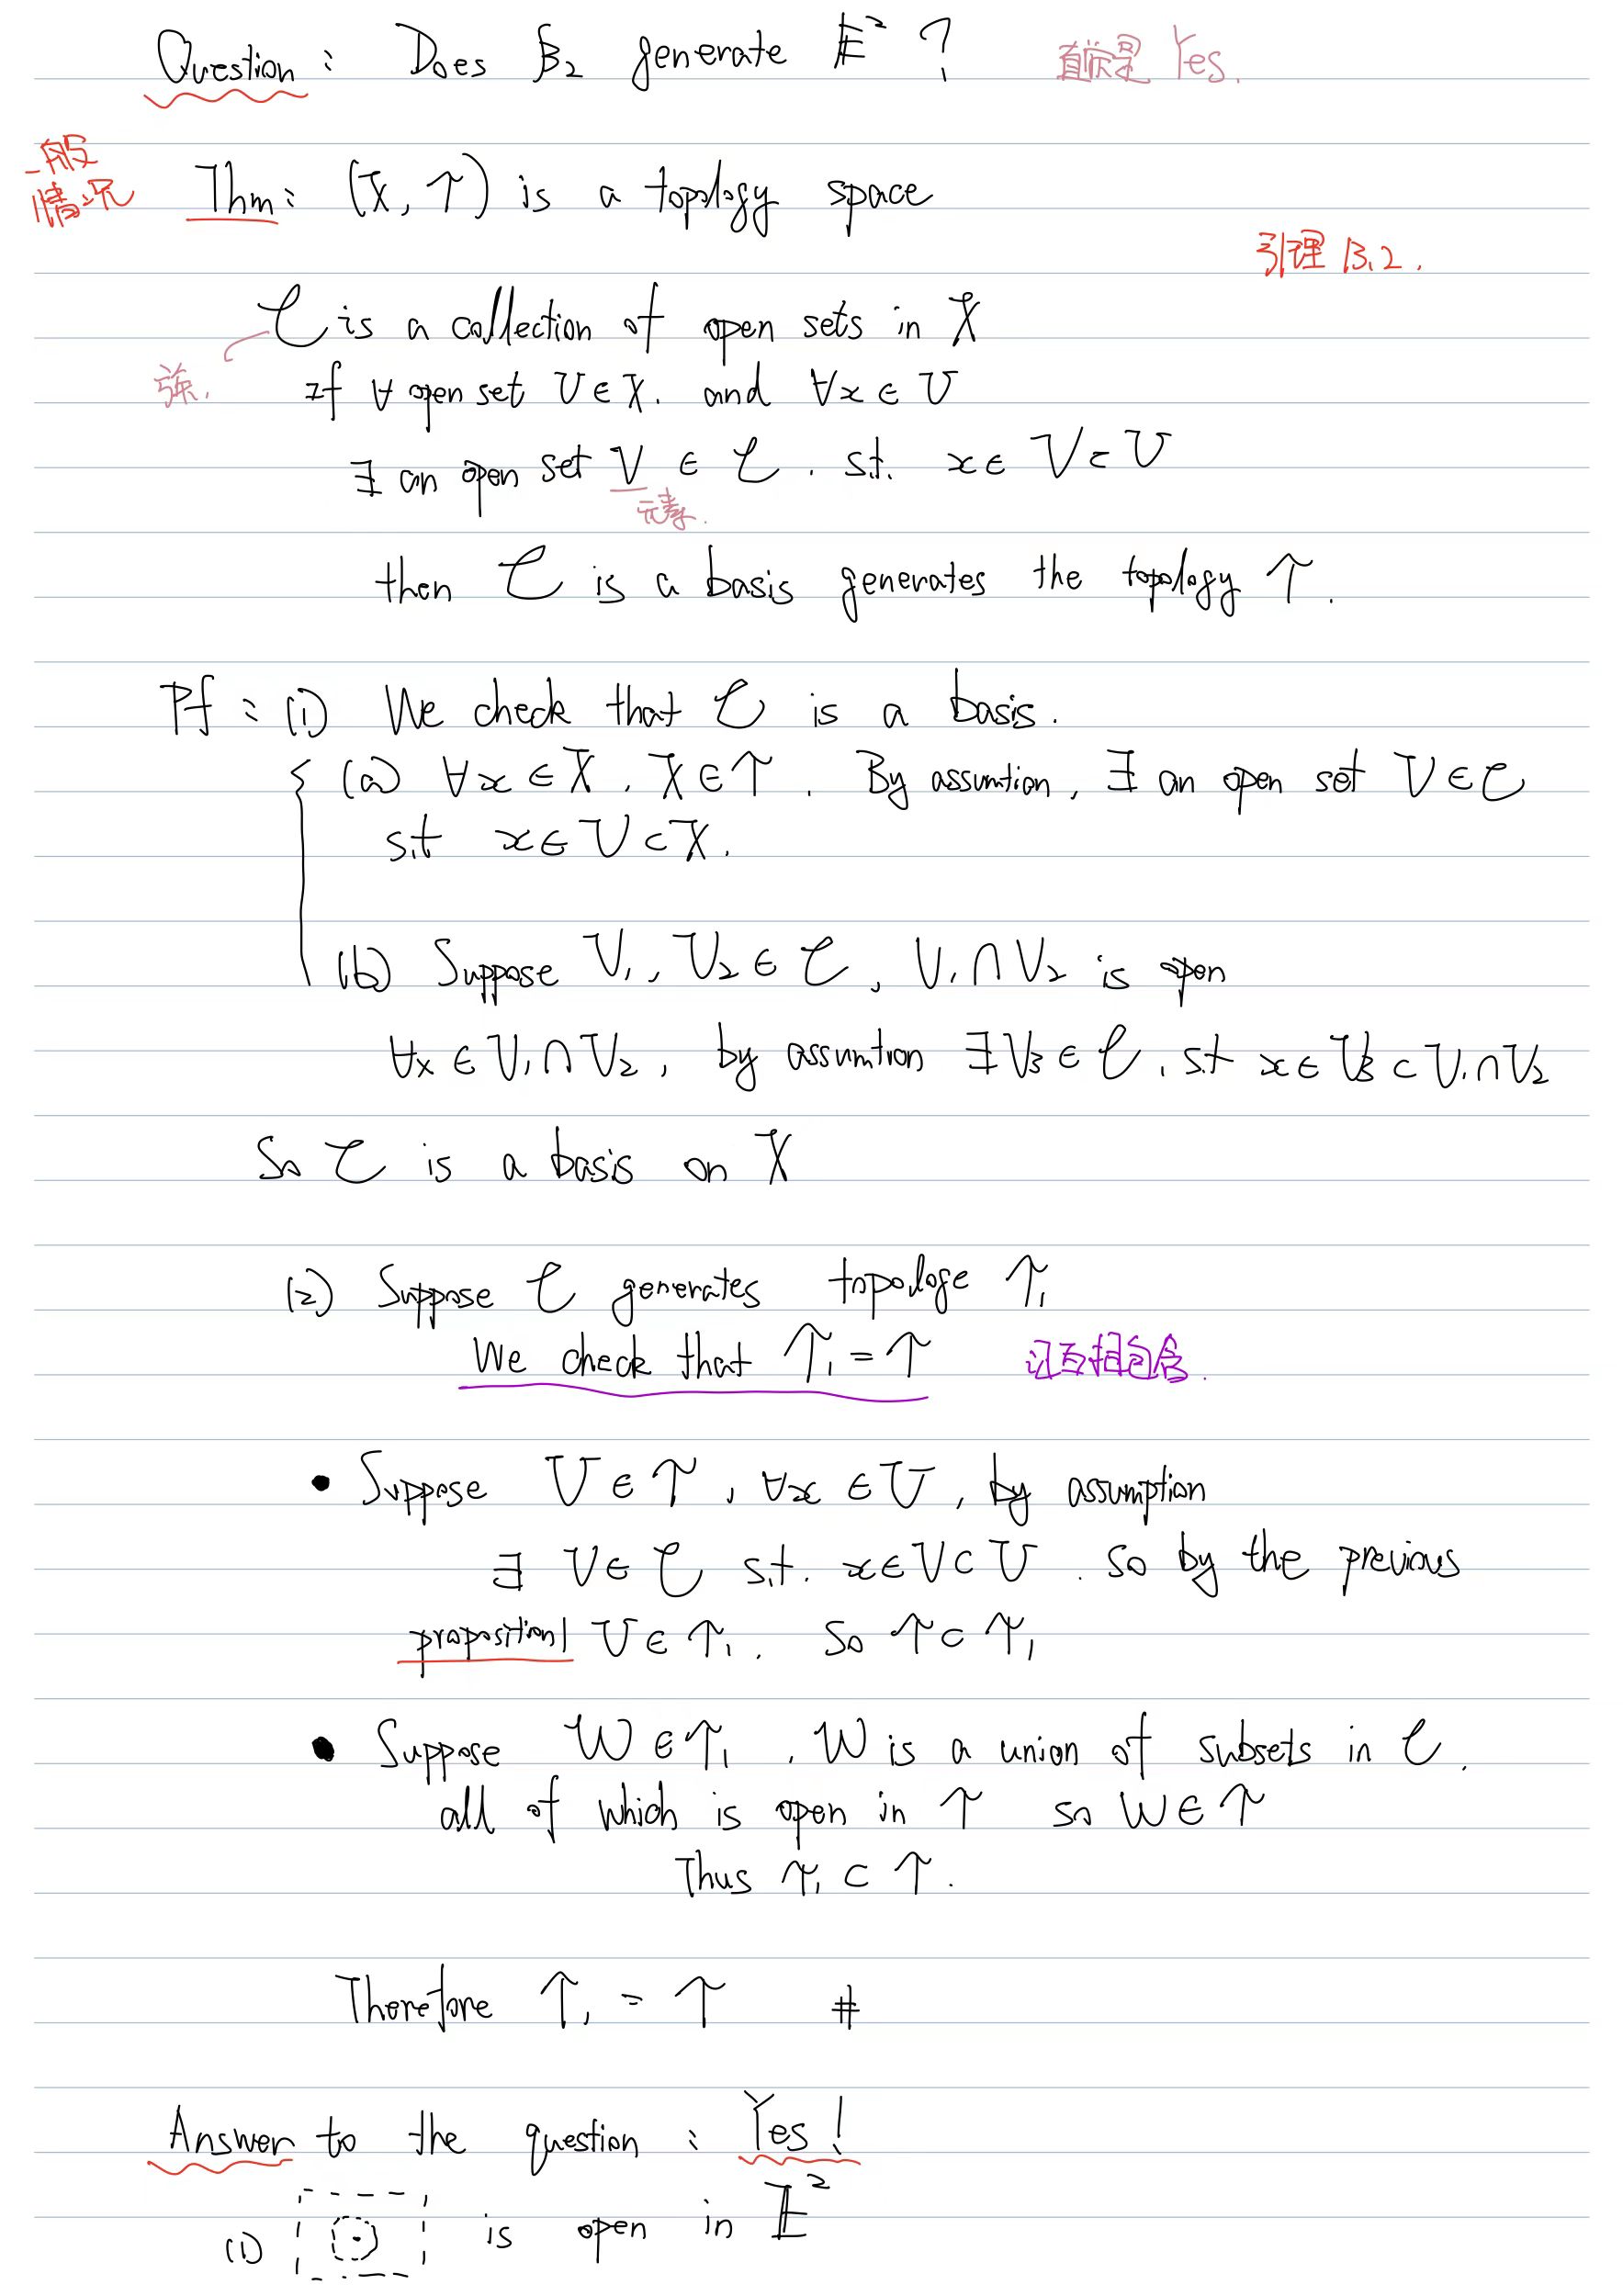 Question: Does β₂ generate 𝔼² ? 直觉是 Yes.
一般
情况
Thm: (X, τ) is a topology space
引理 13.2.
C is a collection of open sets in X
族.
If ∀ open set U ∈ X. and ∀x ∈ U
∃ an open set V ∈ C . s.t. x ∈ V ⊂ U
元素.
then C is a basis generates the topology τ.
Pf: (1) We check that C is a basis.
(a) ∀x ∈ X, X ∈ τ. By assumtion, ∃ an open set V ∈ C
s.t x ∈ V ⊂ X.
(b) Suppose V₁, V₂ ∈ C, V₁ ∩ V₂ is open
∀x ∈ V₁ ∩ V₂, by assumtion ∃ V₃ ∈ C, s.t x ∈ V₃ ⊂ V₁ ∩ V₂
So C is a basis on X
(2) Suppose C generates topologe τ₁
We check that τ₁ = τ 证互相包含.
• Suppose U ∈ τ, ∀x ∈ U, by assumption
∃ V ∈ C s.t. x ∈ V ⊂ U. So by the previous
proposition1 U ∈ τ₁. So τ ⊂ τ₁
• Suppose W ∈ τ₁, W is a union of subsets in C.
all of which is open in τ so W ∈ τ
Thus τ₁ ⊂ τ.
Therefore τ₁ = τ #
Answer to the question: Yes!
(1) is open in 𝔼²